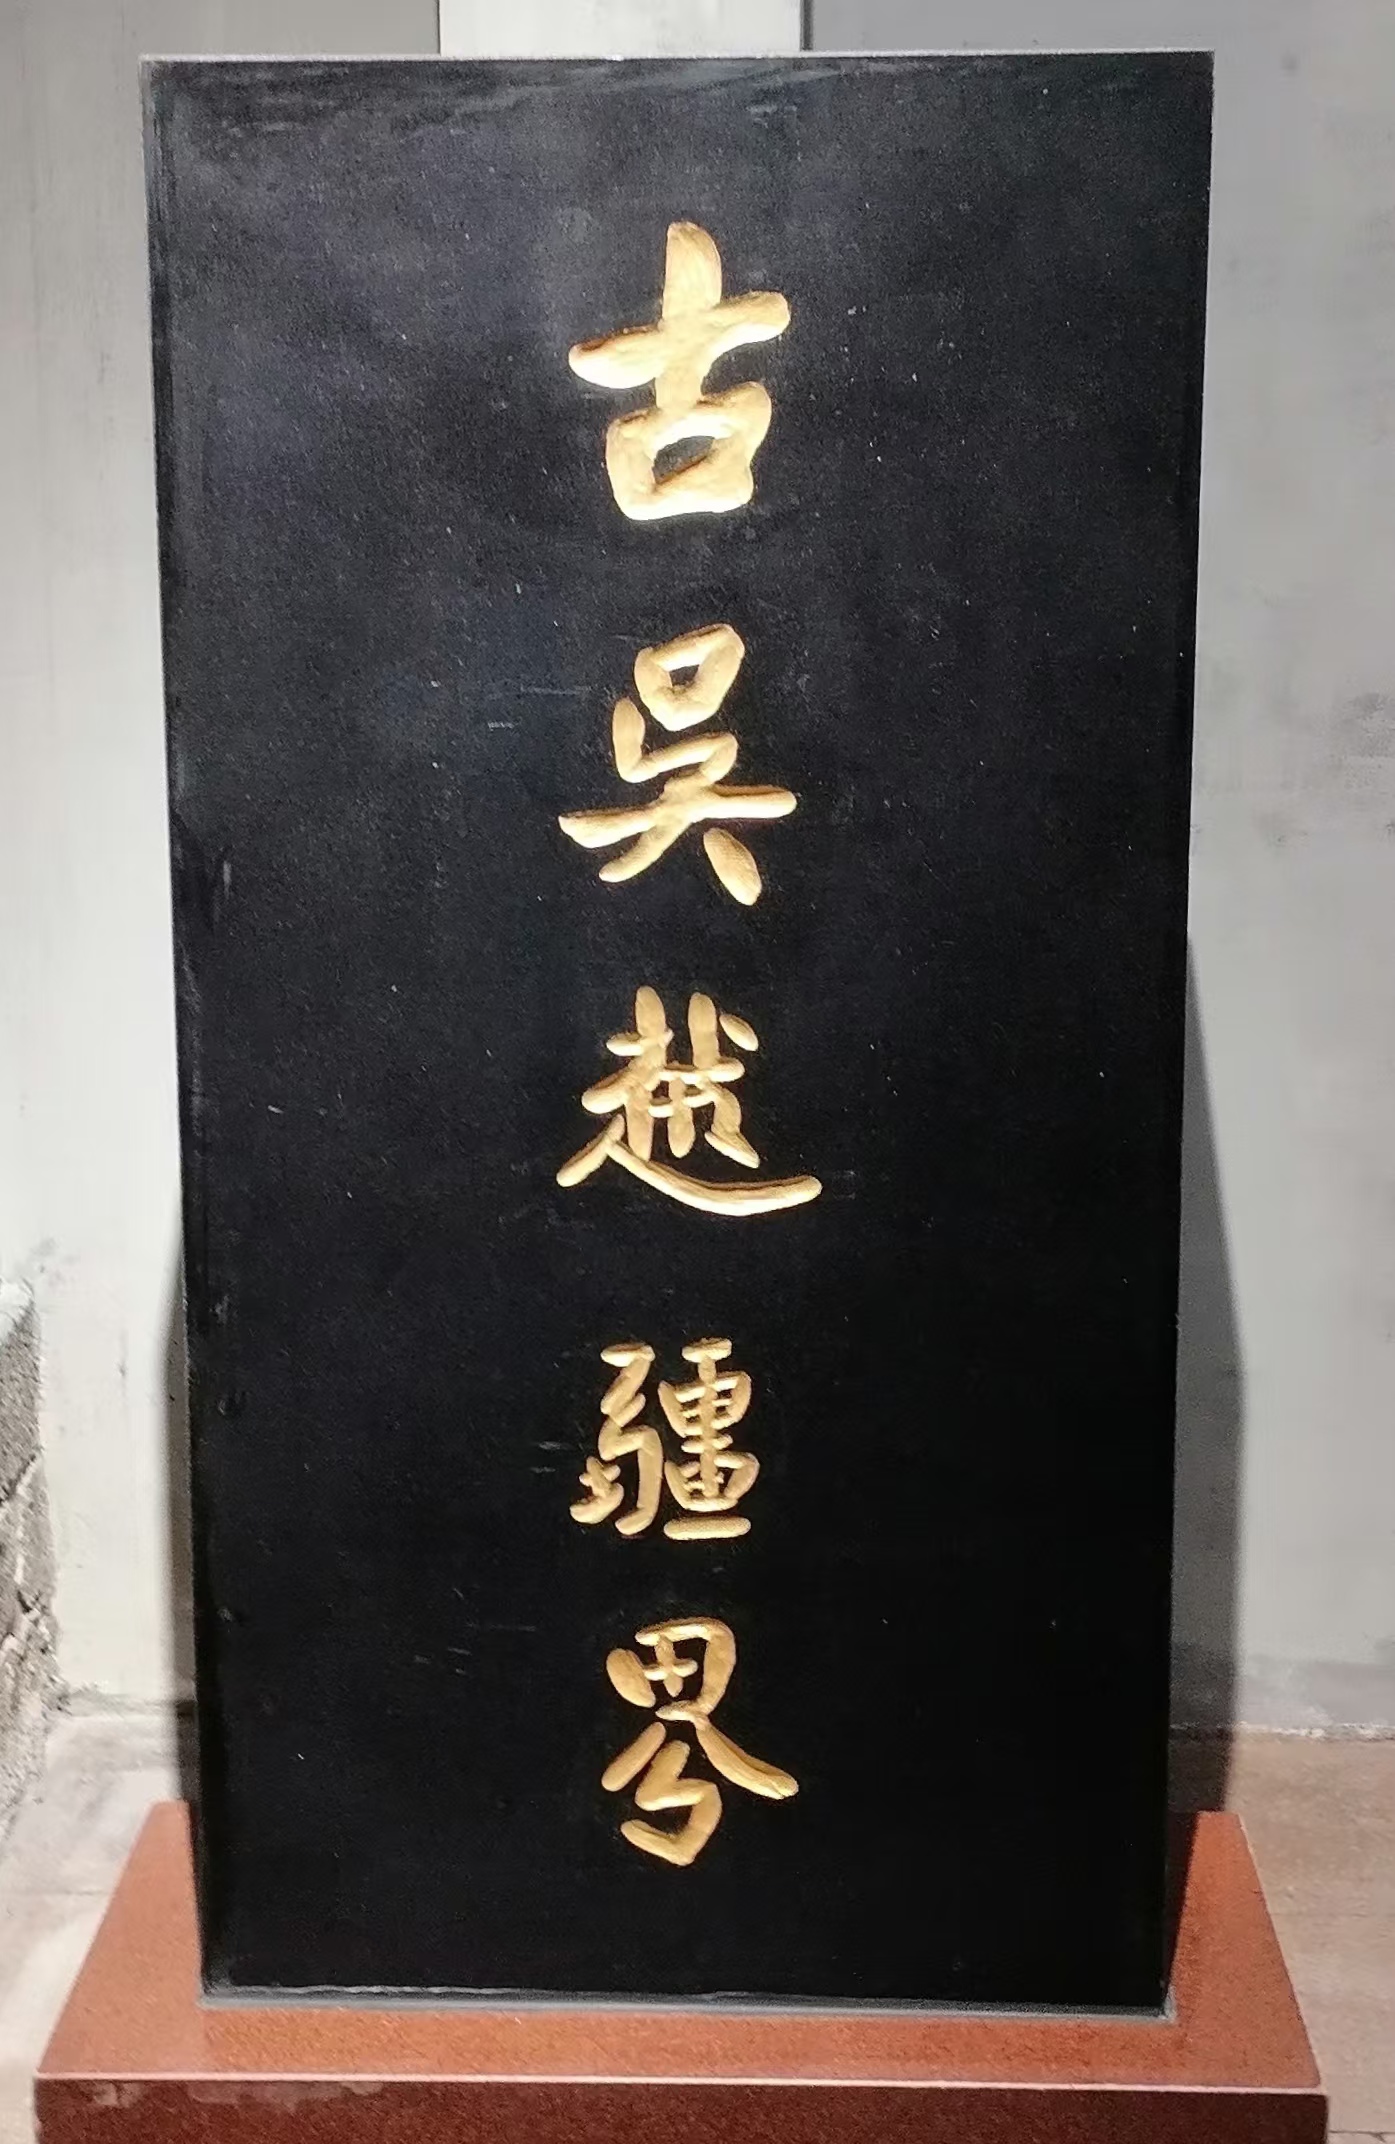 古吳越疆界